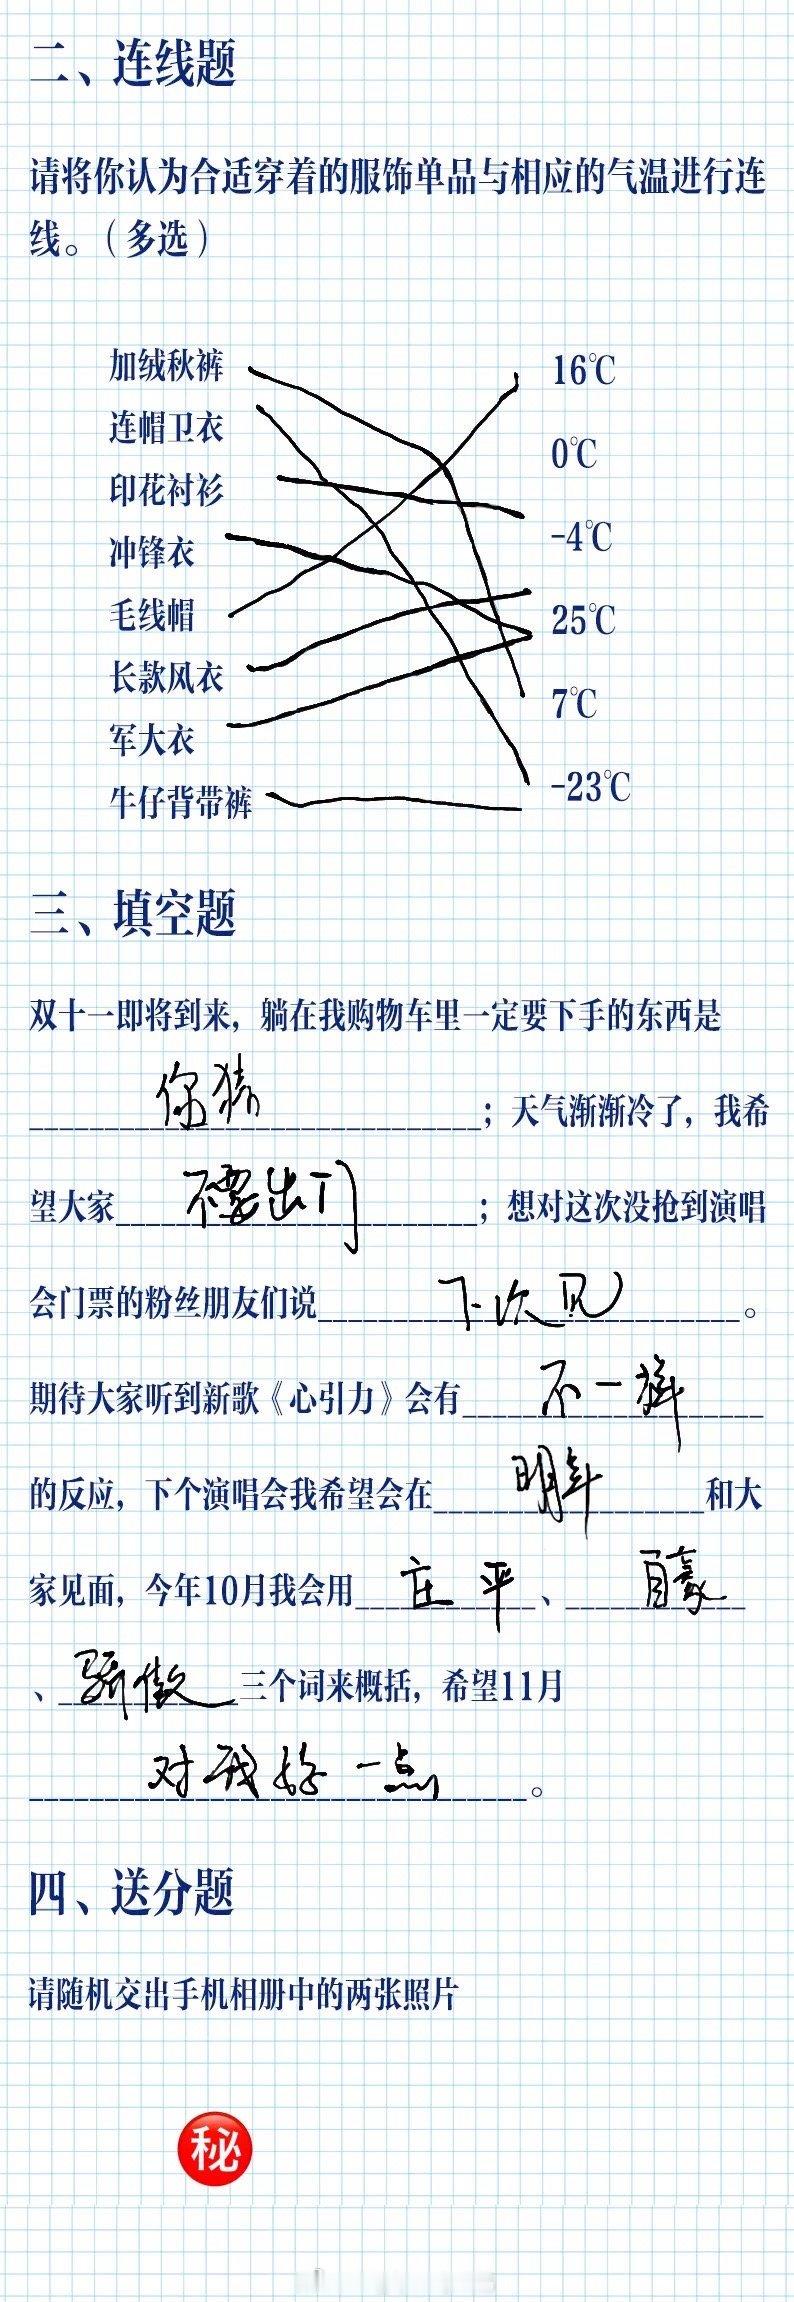 二、连线题
请将你认为合适穿着的服饰单品与相应的气温进行连
线。（多选）
加绒秋裤 16℃
连帽卫衣 0℃
印花衬衫 -4℃
冲锋衣 25℃
毛线帽 7℃
长款风衣 -23℃
军大衣
牛仔背带裤
三、填空题
双十一即将到来，躺在我购物车里一定要下手的东西是
你猜；天气渐渐冷了，我希
望大家不要出门；想对这次没抢到演唱
会门票的粉丝朋友们说下次见。
期待大家听到新歌《心引力》会有不一样
的反应，下个演唱会我希望会在明年和大
家见面，今年10月我会用庄平、自豪
、骄傲三个词来概括，希望11月
对我好一点。
四、送分题
请随机交出手机相册中的两张照片
秘